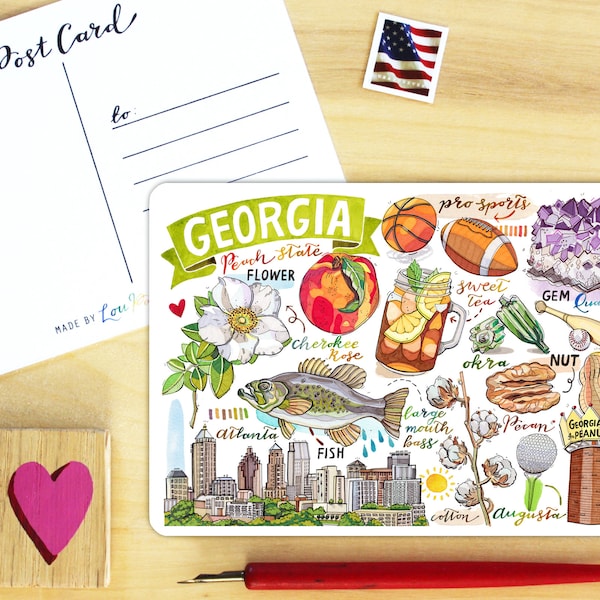 Post Card
to:
MADE BY Lou
GEORGIA
Peach State
FLOWER
Cherokee
Rose
pro sports
sweet
tea
GEM
okra
NUT
large
mouth
bass
Atlanta
FISH
Pecan
GEORGIA
PEANU
cotton
Augusta